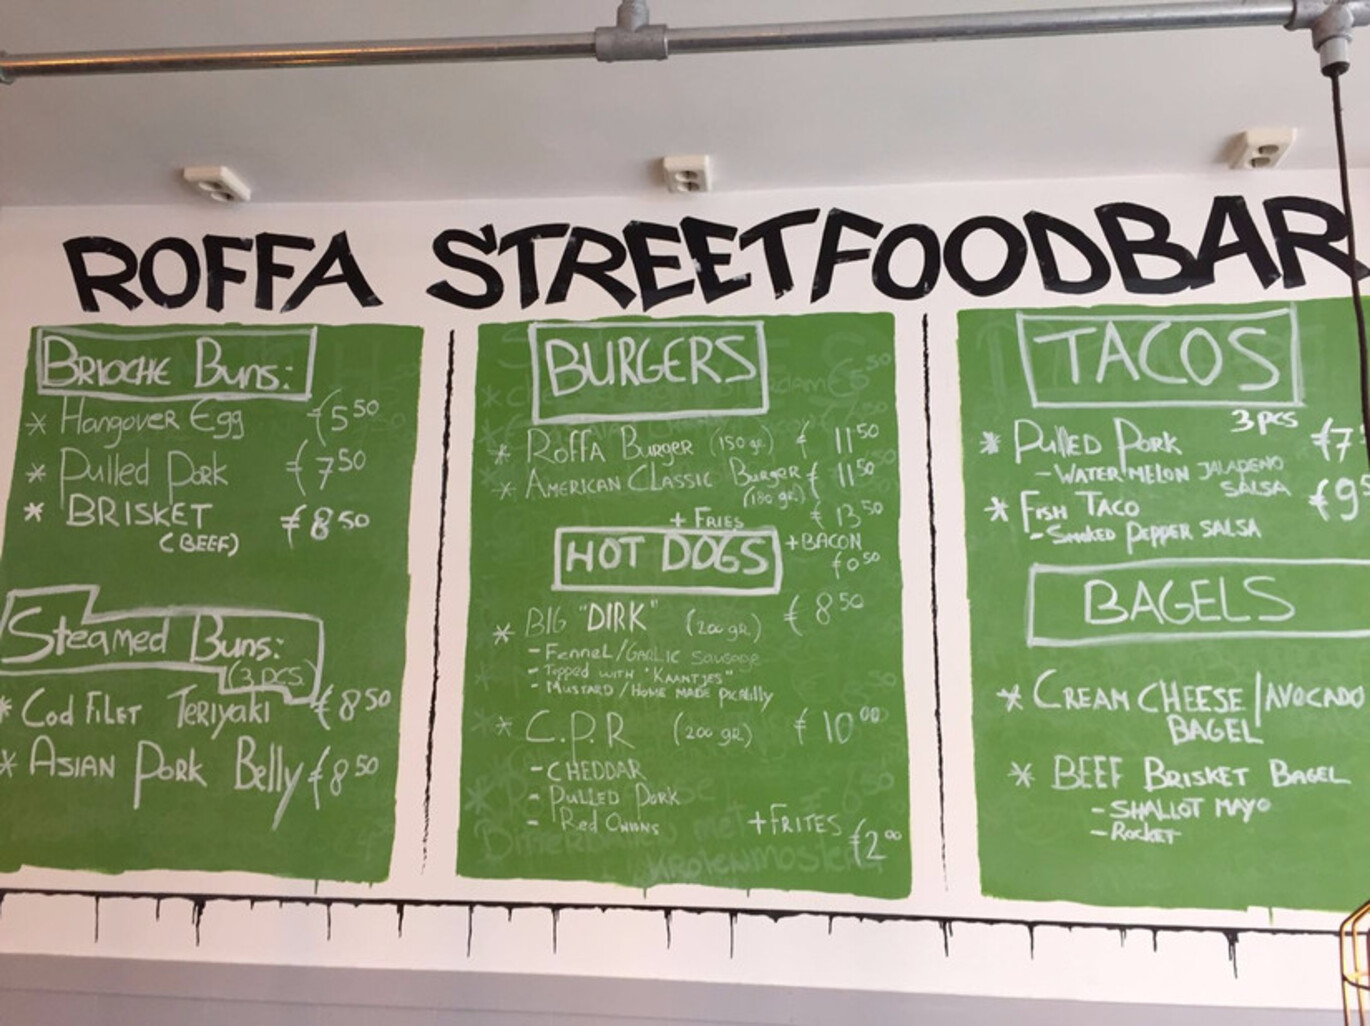 ROFFA STREETFOODBAR
BRIOCHE BUNS:
* Hangover Egg €550
* Pulled Pork €750
* BRISKET €850
(BEEF)
Steamed Buns:
(3 PCS)
* Cod Filet Teriyaki €850
* ASIAN PORK Belly €850
BURGERS
* Roffa Burger (150 gr.) € 1150
* AMERICAN CLASSIC Burger € 1150
(180 gr.)
+ FRIES € 1350
HOT DOGS
+BACON
€050
* BIG "DIRK" (200 gr.) € 850
- Fennel/GARLIC Sausage
- Topped with "KAANTJES"
- MUSTARD / HOME MADE PICALILLY
* C.P.R (200 gr.) € 1000
- CHEDDAR
- PULLED PORK
- Red Onions
+FRITES €200
TACOS
3 pcs
* Pulled Pork €7
- WATERMELON JALAPENO
SALSA
* Fish Taco €9
- Smoked Pepper SALSA
BAGELS
* CREAM CHEESE/AVOCADO
BAGEL
* BEEF BRISKET BAGEL
- SHALLOT MAYO
- Rocket